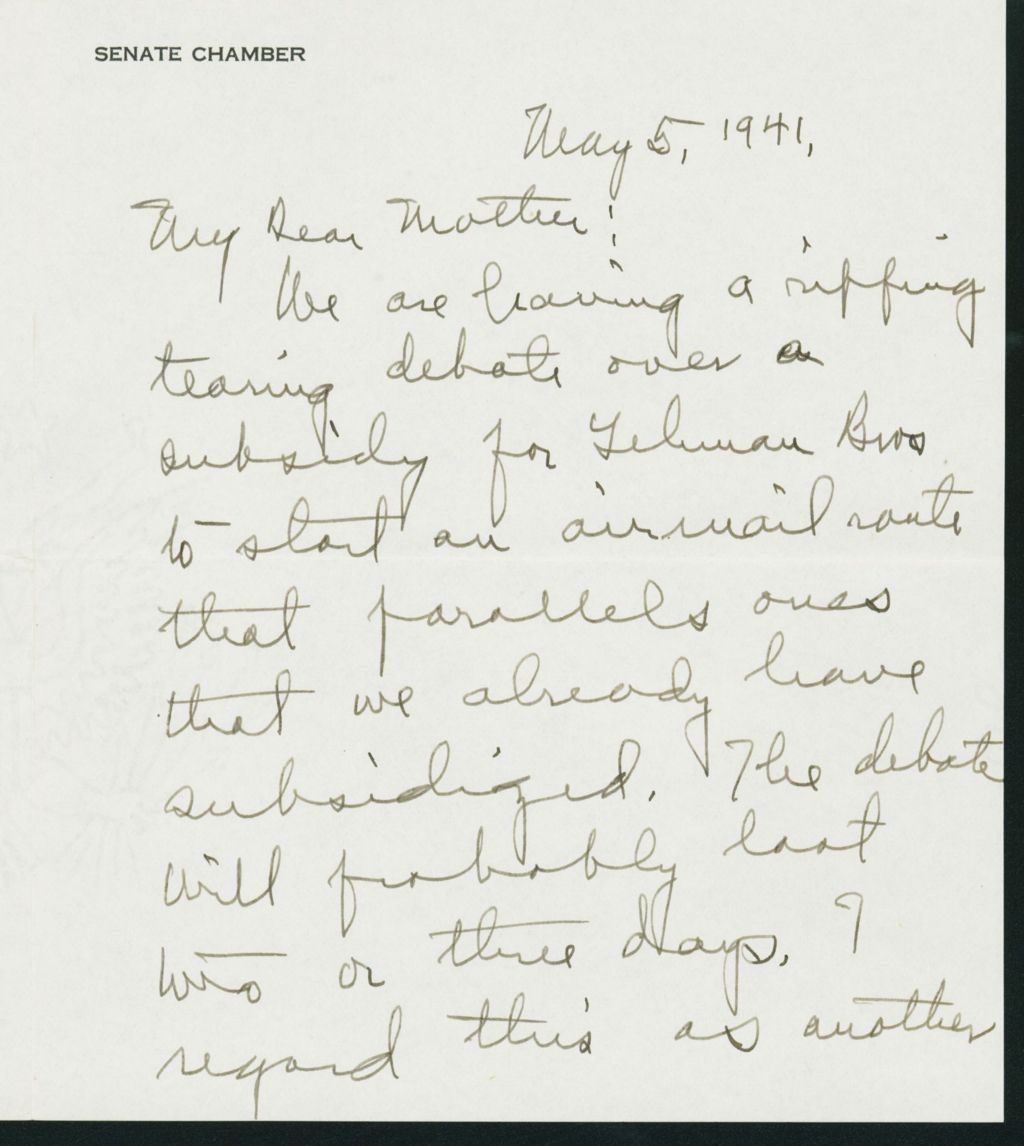 SENATE CHAMBER
May 5, 1941,
My Dear Mother:
We are having a ripping
tearing debate over a
subsidy for Lehman Bros
to start an airmail route
that parallels ones
that we already have
subsidized. The debate
will probably last
two or three days. I
regard this as another